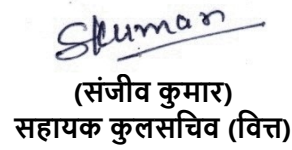 SKumar
(संजीव कुमार)
सहायक कुलसचिव (वित्त)